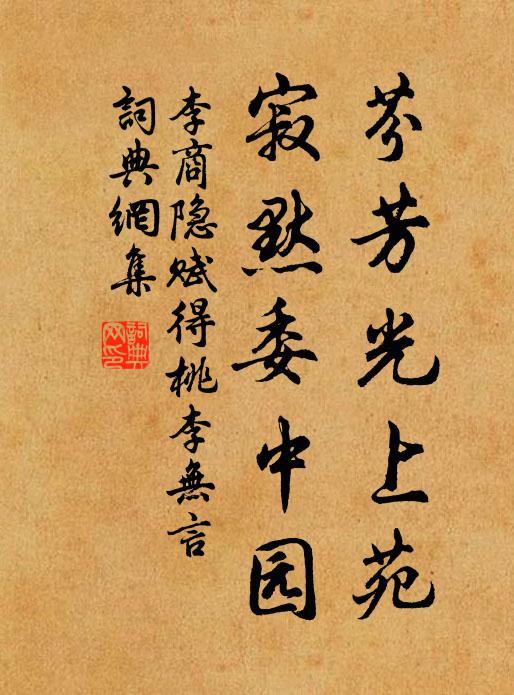 芬芳光上苑
寂默委中园
李商隐赋得桃李無言
詞典網集
詞典网印